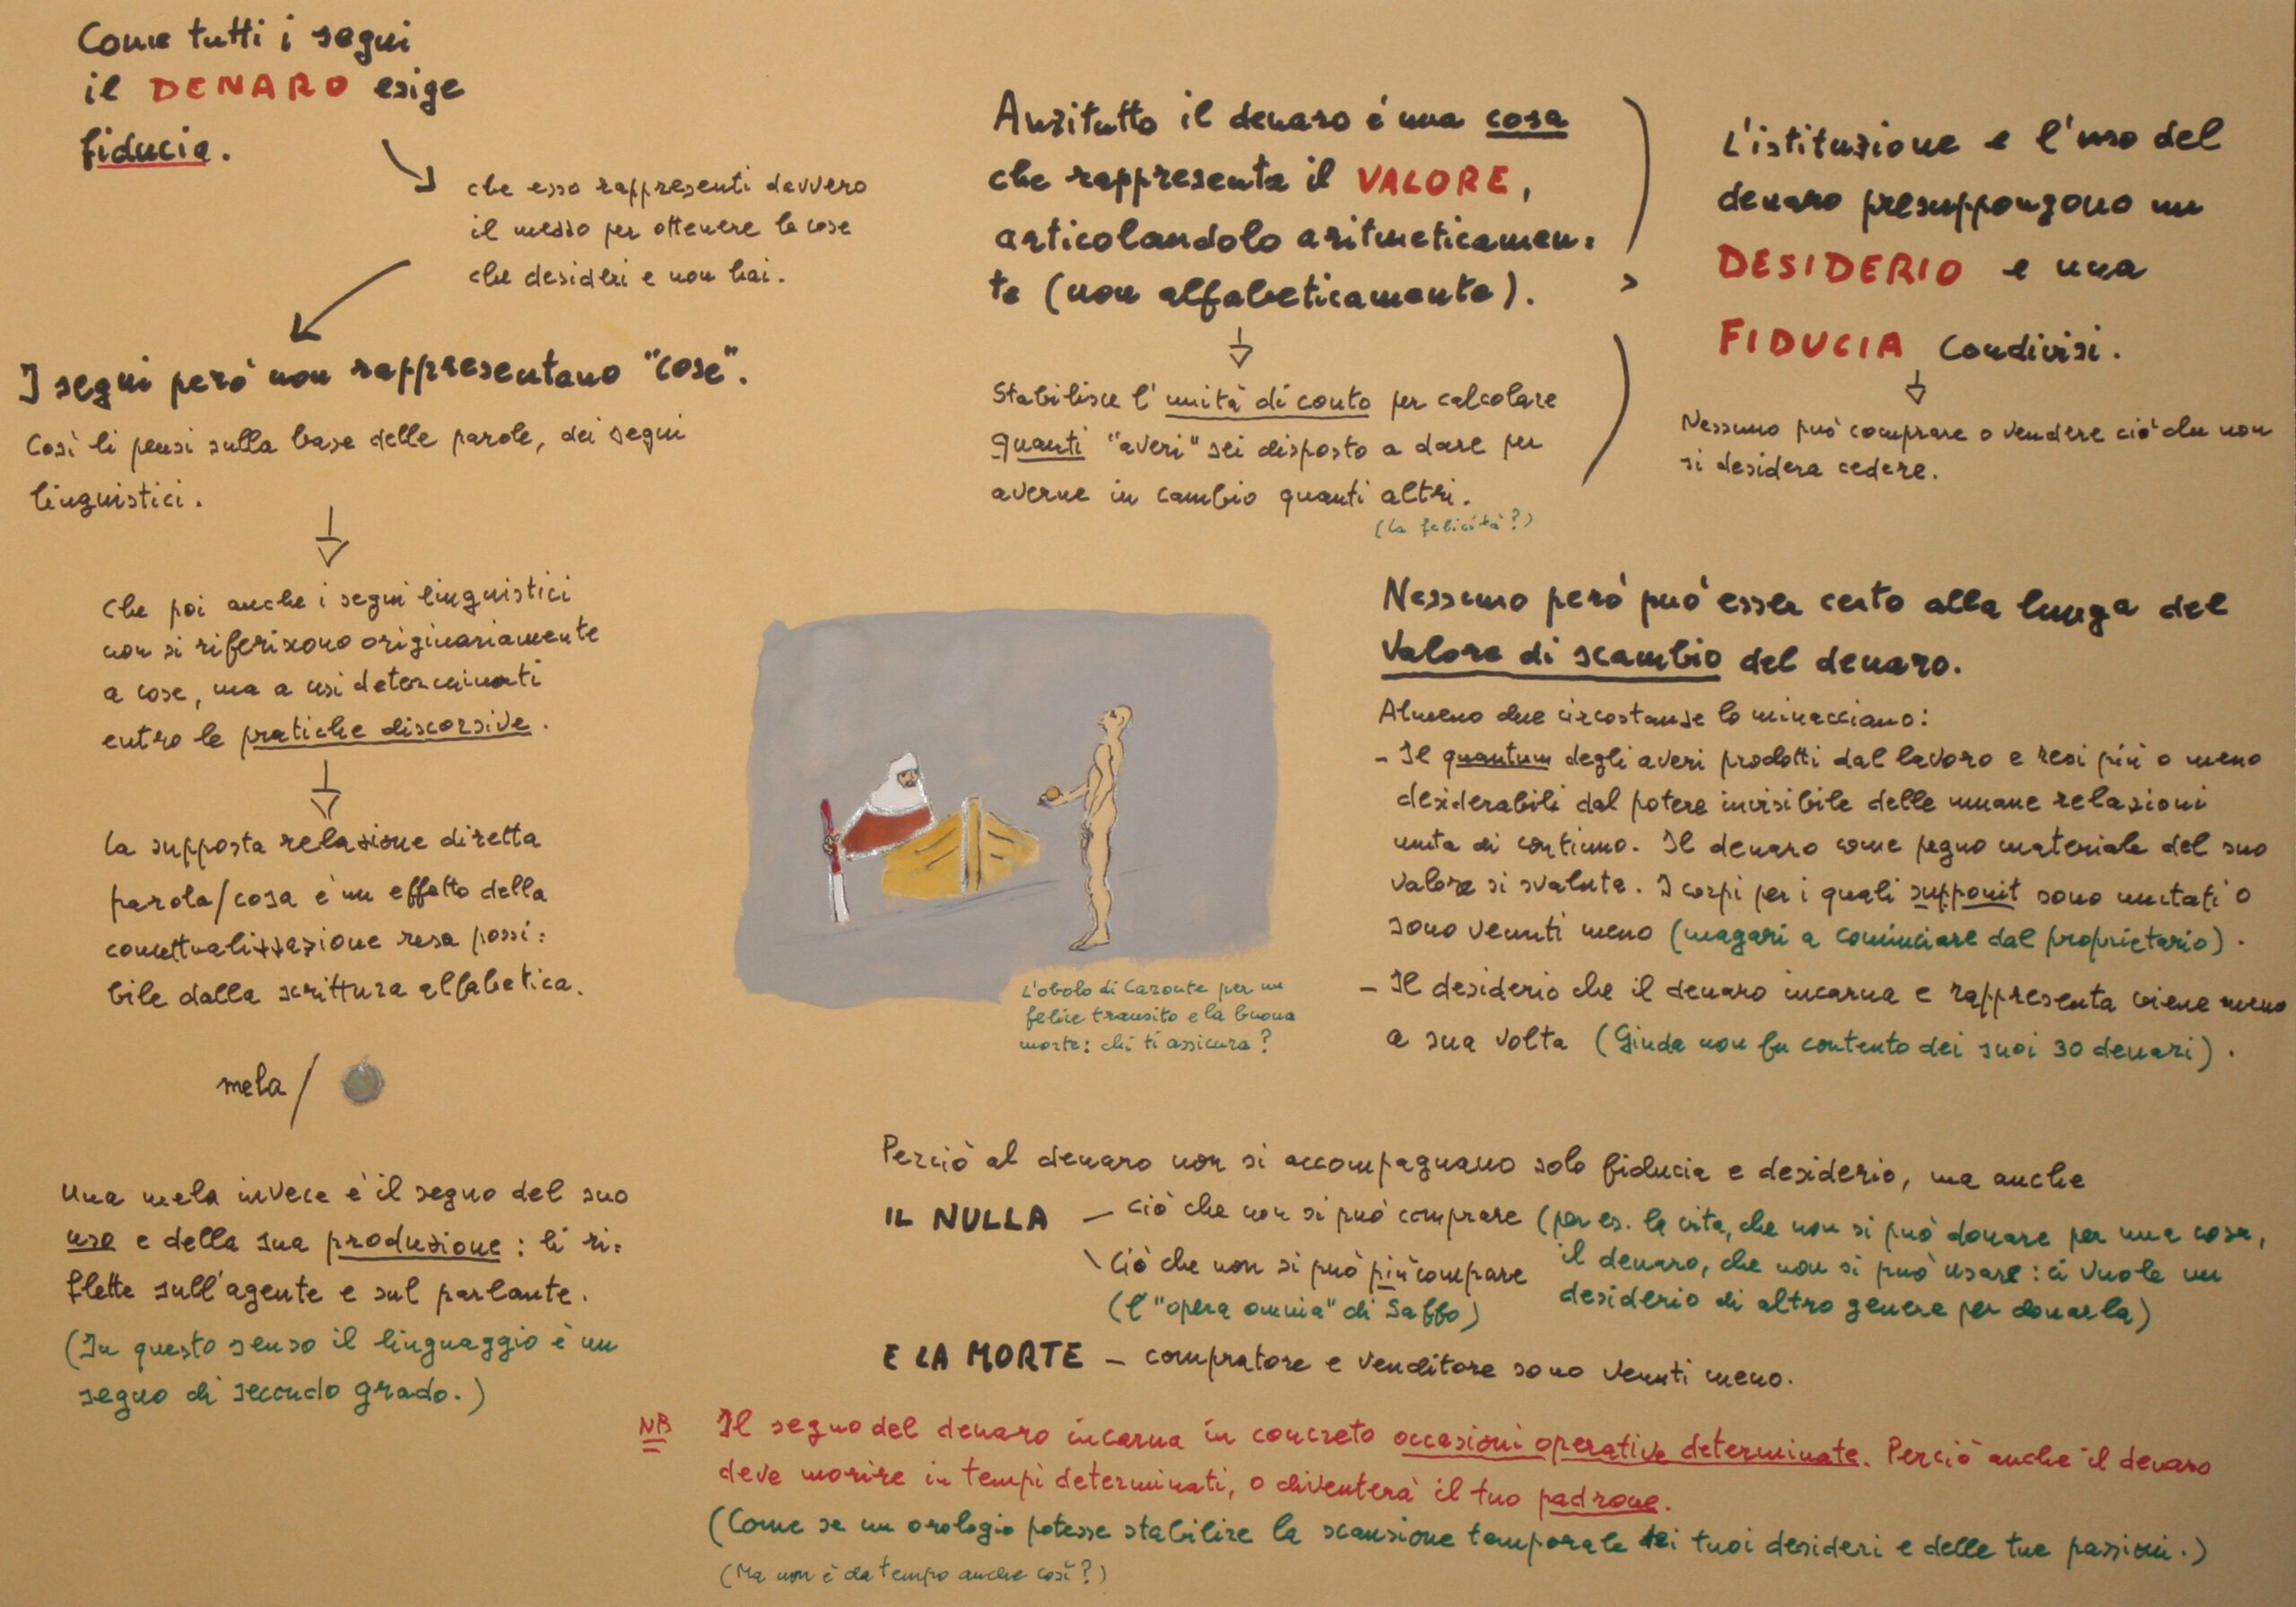 Come tutti i segni
il DENARO esige
fiducia.
che esso rappresenti davvero
il mezzo per ottenere le cose
che desideri e non hai.
I segni però non rappresentano "cose".
Così li pensi sulla base delle parole, dei segni
linguistici.
Che poi anche i segni linguistici
non si riferiscono originariamente
a cose, ma a usi determinati
entro le pratiche discorsive.
La supposta relazione diretta
parola/cosa è un effetto della
concettualizzazione resa possi=
bile dalla scrittura alfabetica.
mela/
Una mela invece è il segno del suo
uso e della sua produzione: li ri=
flette sull'agente e sul parlante.
(In questo senso il linguaggio è un
segno di secondo grado.)
Anzitutto il denaro è una cosa
che rappresenta il VALORE,
articolandolo aritmeticamen=
te (non alfabeticamente).
Stabilisce l'unità di conto per calcolare
quanti "averi" sei disposto a dare per
averne in cambio quanti altri.
(la felicità?)
L'istituzione e l'uso del
denaro presuppongono un
DESIDERIO e una
FIDUCIA condivisi.
Nessuno può comprare o vendere ciò che non
si desidera cedere.
L'obolo di Caronte per un
felice transito e la buona
morte: chi ti assicura?
Nessuno però può esser certo alla lunga del
valore di scambio del denaro.
Almeno due circostanze lo minacciano:
- Il quantum degli averi prodotti dal lavoro e resi più o meno
desiderabili dal potere invisibile delle umane relazioni
muta di continuo. Il denaro come pegno materiale del suo
valore si svaluta. I corpi per i quali supponit sono mutati o
sono venuti meno (magari a cominciare dal proprietario).
- Il desiderio che il denaro incarna e rappresenta viene meno
a sua volta (Giuda non fu contento dei suoi 30 denari).
Perciò al denaro non si accompagnano solo fiducia e desiderio, ma anche
IL NULLA - ciò che non si può comprare (per es. la vita, che non si può donare per una cosa,
il denaro, che non si può usare: ci vuole un
desiderio di altro genere per donarla)
\ ciò che non si può più comprare
(l'"opera omnia" di Saffo)
E LA MORTE - compratore e venditore sono venuti meno.
NB Il segno del denaro incarna in concreto occasioni operative determinate. Perciò anche il denaro
deve morire in tempi determinati, o diventerà il tuo padrone.
(Come se un orologio potesse stabilire la scansione temporale dei tuoi desideri e delle tue passioni.)
(Ma non è da tempo anche così?)